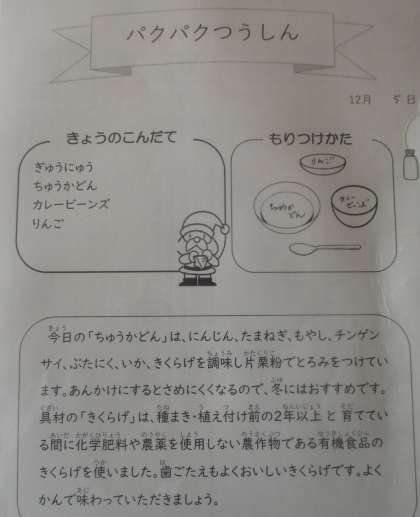 パクパクつうしん
12月 5日
きょうのこんだて
ぎゅうにゅう
ちゅうかどん
カレービーンズ
りんご
もりつけかた
りんご
ちゅうか
どん
カレー
ビーンズ
今日の「ちゅうかどん」は、にんじん、たまねぎ、もやし、チンゲン
サイ、ぶたにく、いか、きくらげを調味し片栗粉でとろみをつけてい
ます。あんかけにするとさめにくくなるので、冬にはおすすめです。
具材の「きくらげ」は、種まき・植え付け前の2年以上と育ててい
る間に化学肥料や農薬を使用しない農作物である有機食品の
きくらげを使いました。歯ごたえもよくおいしいきくらげです。よく
かんで味わっていただきましょう。